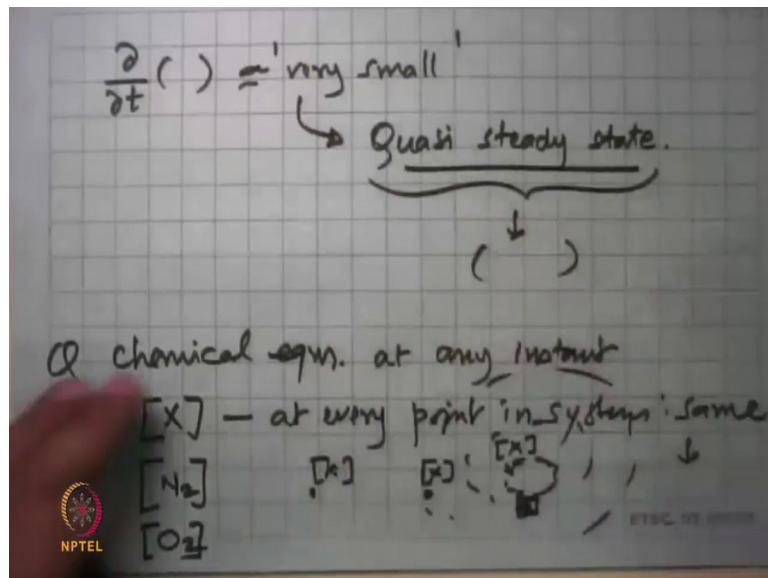 ∂/∂t ( ) = 'very small'
Quasi steady state.
( )
Q chemical eqm. at any instant
[X] — at every point in system : same
[X]
[N₂] [X] [X]
[O₂]
NPTEL